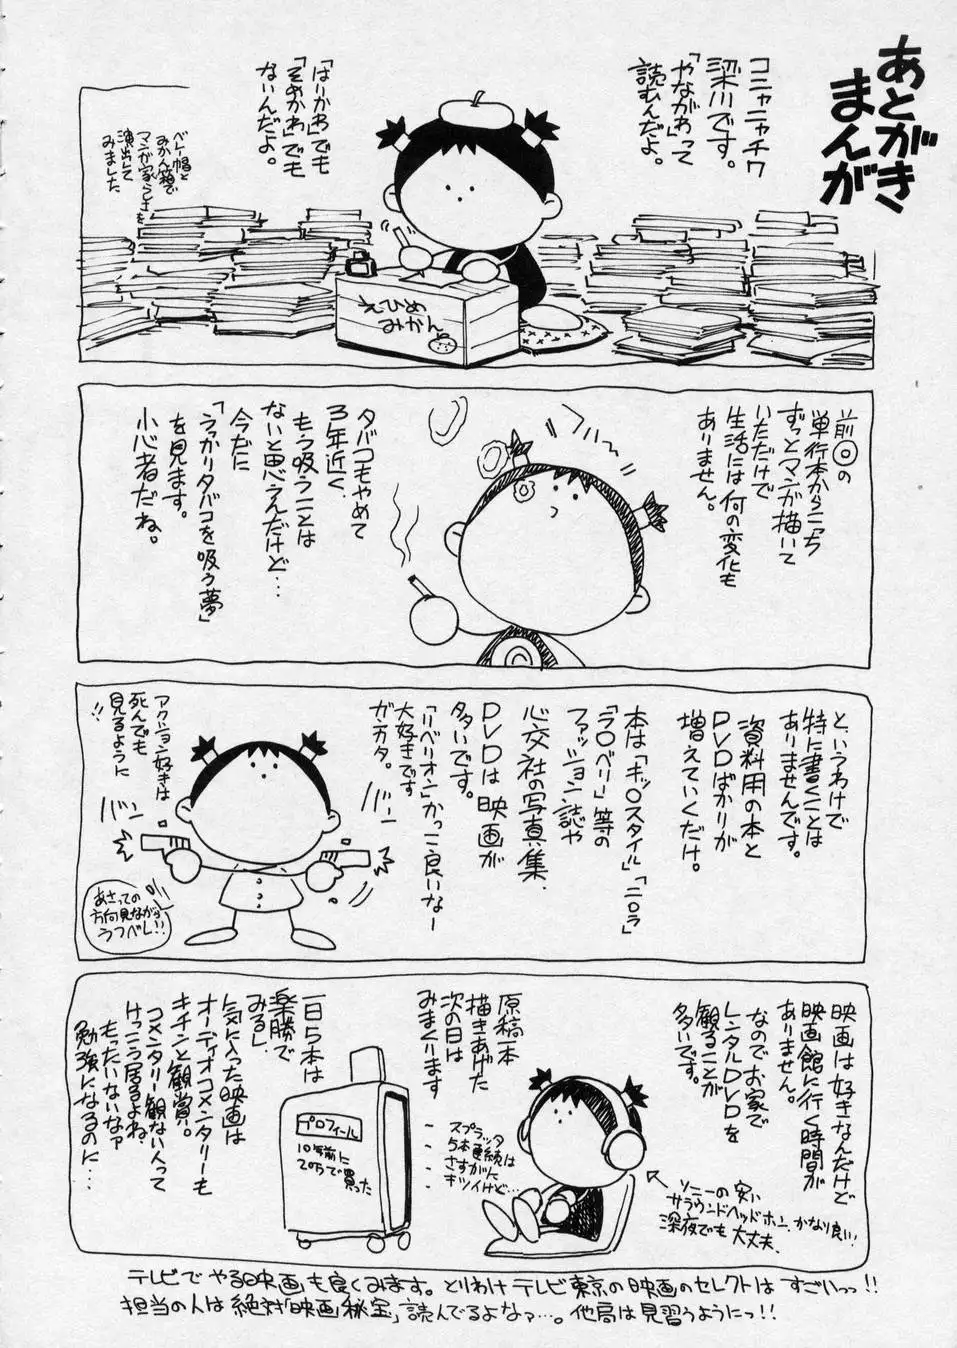 あとがき
まんが
コニャニャチワ
梁川です。
「やながわ」って
読むんだよ。
「はりかわ」でも
「そめかわ」でも
ないんだよ。
ベレー帽と
みかん箱で
マンガ家らしさを
演出して
みました
えひめ
みかん
前回の
単行本からこっち
ずっとマンガ描いて
いただけで
生活には何の変化も
ありません。
タバコもやめて
3年近く、
もう吸うことは
ないと思えんだけど…
今だに
「うっかりタバコを吸う夢」
を見ます。
小心者だね。
というわけで
特に書くことは
ありませんです。
資料用の本と
DVDばかりが
増えていくだけ。
本は「キッ○スタイル」「ニ○ラ」
「ラ○ベリー」等の
ファッション誌や
心交社の写真集、
DVDは映画が
多いです。
「リベリオン」かっこ良いなー
大好きです
ガンカタ。
バンー
バンー
アクション好きは
死んでも
見るように
!!
あさっての
方向見ながら
うつベし!!
映画は好きなんだけど
映画館に行く時間が
ありません。
なのでお家で
レンタルDVDを
観ることが
多いです。
ソニーの安い
サラウンドヘッドホン、かなり良い!
深夜でも大丈夫。
原稿一本
描きあげた
次の日は
みまくります
スプラッタ
5本連続は
さすがに
キツイけど…
プロフィール
10年前に
20万で買った
一日5本は
楽勝で
みるし、
気に入った映画は
オーディオコメンタリーも
キチンと観賞。
コメンタリー観ない人って
けっこう居るよね。
もったいないなァ
勉強になるのに…
テレビでやる映画も良くみます。とりわけテレビ東京の映画のセレクトはすごいっっ!!
担当の人は絶対「映画秘宝」読んでるよなァ…。他局は見習うようにっ!!